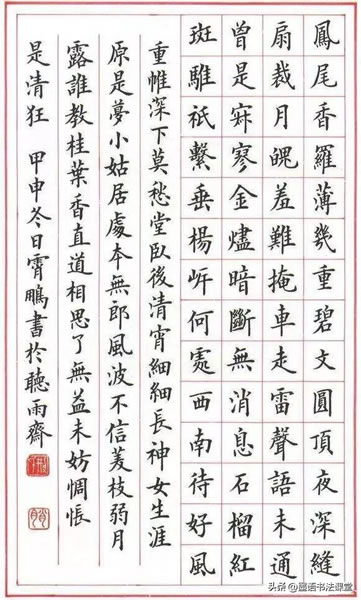 鳳尾香羅薄幾重碧文圓頂夜深縫
扇裁月魄羞難掩車走雷聲語未通
曾是寂寥金燼暗斷無消息石榴紅
斑騅祇繫垂楊岸何處西南待好風
重帷深下莫愁堂臥後清宵細細長神女生涯
原是夢小姑居處本無郎風波不信菱枝弱月
露誰教桂葉香直道相思了無益未妨惆悵
是清狂 甲申冬日霄鵬書於聽雨齋
头条@墨语书法课堂